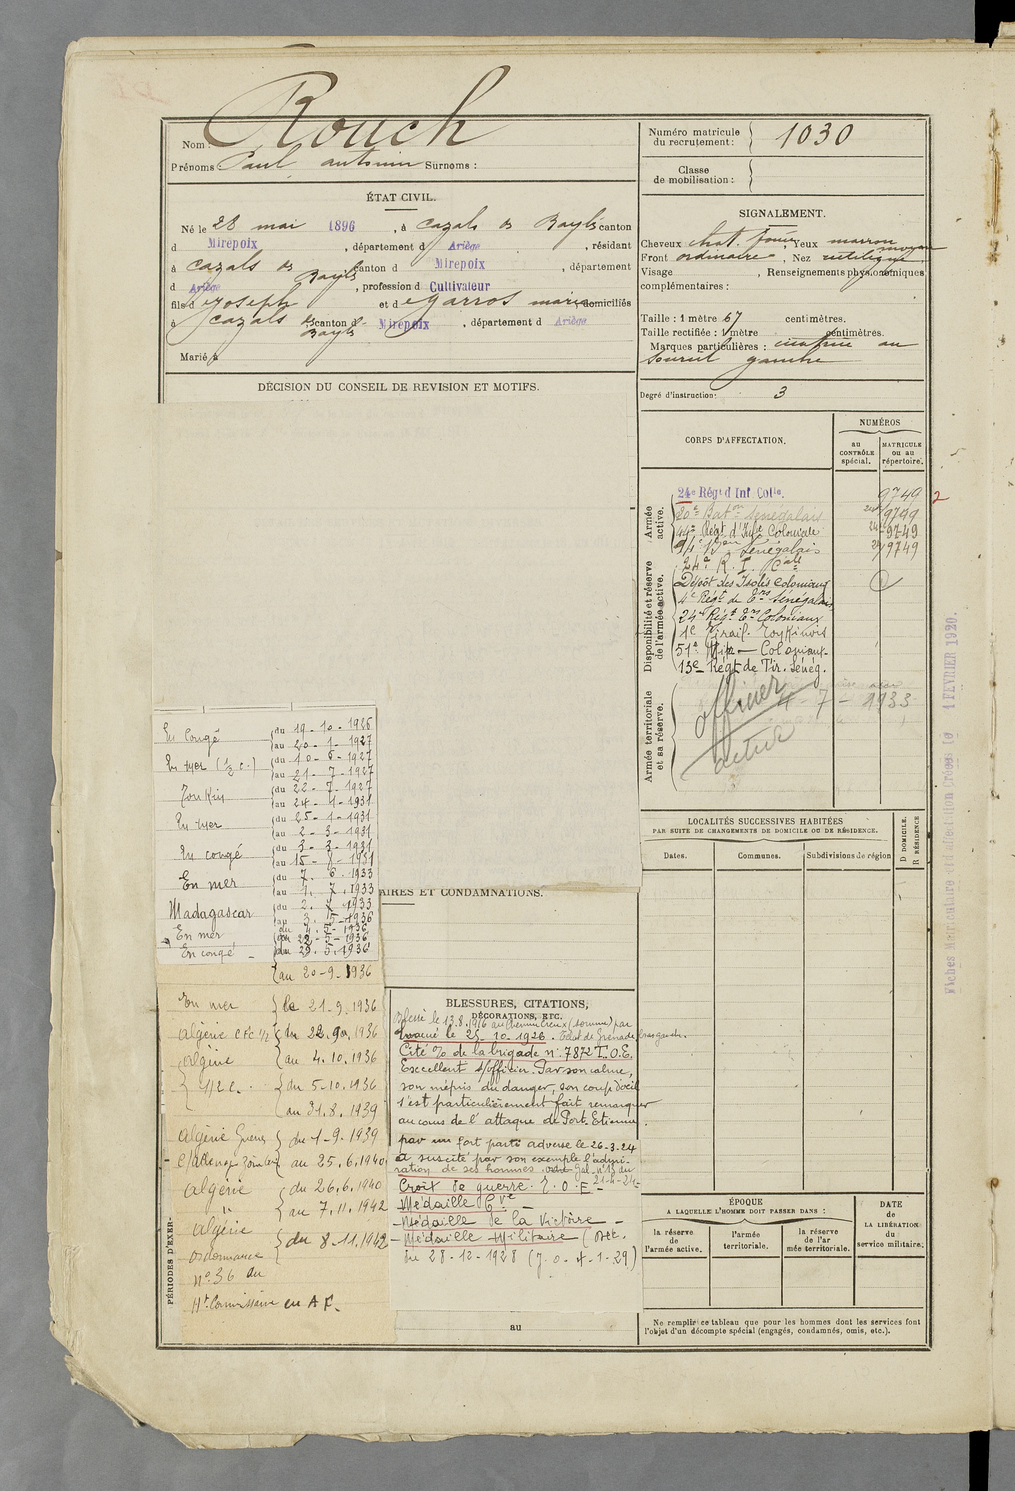 Nom : Rouch
Prénoms : Paul antonin Surnoms :
Numéro matricule du recrutement : 1030
Classe de mobilisation :
ÉTAT CIVIL.
Né le 28 mai 1896, à Cazals des Bayles canton
d Mirepoix, département d Ariège, résidant
à Cazals des Bayles canton d Mirepoix, département
d Ariège, profession d Cultivateur
fils d Joseph et d egarros marie domiciliés
à Cazals des Bayles canton d Mirepoix, département d Ariège
Marié à
SIGNALEMENT.
Cheveux chat. foncé Yeux marron moyen
Front ordinaire, Nez rectiligne
Visage , Renseignements physionomiques
complémentaires :
Taille : 1 mètre 67 centimètres.
Taille rectifiée : 1 mètre centimètres.
Marques particulières : cicatrice au
sourcil gauche
Degré d'instruction : 3
DÉCISION DU CONSEIL DE REVISION ET MOTIFS.
CORPS D'AFFECTATION.
NUMÉROS
au CONTRÔLE spécial.
MATRICULE ou au répertoire.
Armée active.
24e Régt d Inf Colle. 9749 2
20e Batn Sénégalais 9749
44e Régt d'Infie Coloniale 9749
94e Bon Sénégalais 9749
Disponibilité et réserve de l'armée active.
24e R. I. Cale
Dépôt des Isolés Coloniaux
4e Régt de Trs Sénégalais
24e Régt Trs Coloniaux
1e Tirail. Tonkinois
51e Coloniaux
13e Régt de Tir. Sénég.
Armée territoriale et sa réserve.
officier
4 - 7 - 1933
active
Fiches Matriculaire et d'affectation Créées le 1 FEVRIER 1920.
En Congé { du 19-10-1926
au 20-1-1927
En mer (1/2 c.) { du 10-6-1927
au 21-7-1927
Tonkin { du 22-7-1927
au 24-1-1931
En mer { du 25-1-1931
au 2-3-1931
En congé { du 3-3-1931
au 15-8-1931
En mer { du 7.6.1933
au 1.7.1933
Madagascar { du 2.7.1933
au 3.5.1936
En mer { du 4.5-1936
au 22-5-1936
En congé { du 23.5.1936
au 20-9-1936
En mer { le 21-9.1936
Algérie CFC 1/2 { du 22.9.1936
Algérie { au 4.10.1936
1/2 C. { du 5-10.1936
au 31.8.1939
Algérie Guerre { du 1-9.1939
au 25.6.1940
algérie { du 26.6.1940
" au 7.11.1942
algérie { du 8-11.1942
ordonnance
n° 36 du
Ht Commissaire en A F.
PÉRIODES D'EXER-
AIRES ET CONDAMNATIONS.
BLESSURES, CITATIONS, DÉCORATIONS, ETC.
Blessé le 13.8.1916 au Chemin Creux (Somme) par
Evacué le 25-10-1926. Eclat de grenade
Cité O/ de la brigade n° 7872 T.O.E.
Excellent s/officier. Par son calme,
son mépris du danger, son coup d'œil
s'est particulièrement fait remarquer
au cours de l'attaque de Port-Etienne
par un fort parti adverse le 26-3-24
a suscité par son exemple l'admi-
ration de ses hommes. Ordre Gal n° 13 du 21-4-24
Croix de guerre T.O.E -
Médaille Cve -
- Médaille de la Victoire -
- Médaille Militaire (Dt.
du 28-12-1928 (J.O. 4-1-29)
au
LOCALITÉS SUCCESSIVES HABITÉES
PAR SUITE DE CHANGEMENTS DE DOMICILE OU DE RÉSIDENCE.
Dates. Communes. Subdivisions de région
D DOMICILE. R RÉSIDENCE
ÉPOQUE
A LAQUELLE L'HOMME DOIT PASSER DANS :
la réserve de l'armée active.
l'armée territoriale.
la réserve de l'armée territoriale.
DATE de LA LIBÉRATION du service militaire.
Ne remplir ce tableau que pour les hommes dont les services font
l'objet d'un décompte spécial (engagés, condamnés, omis, etc.).